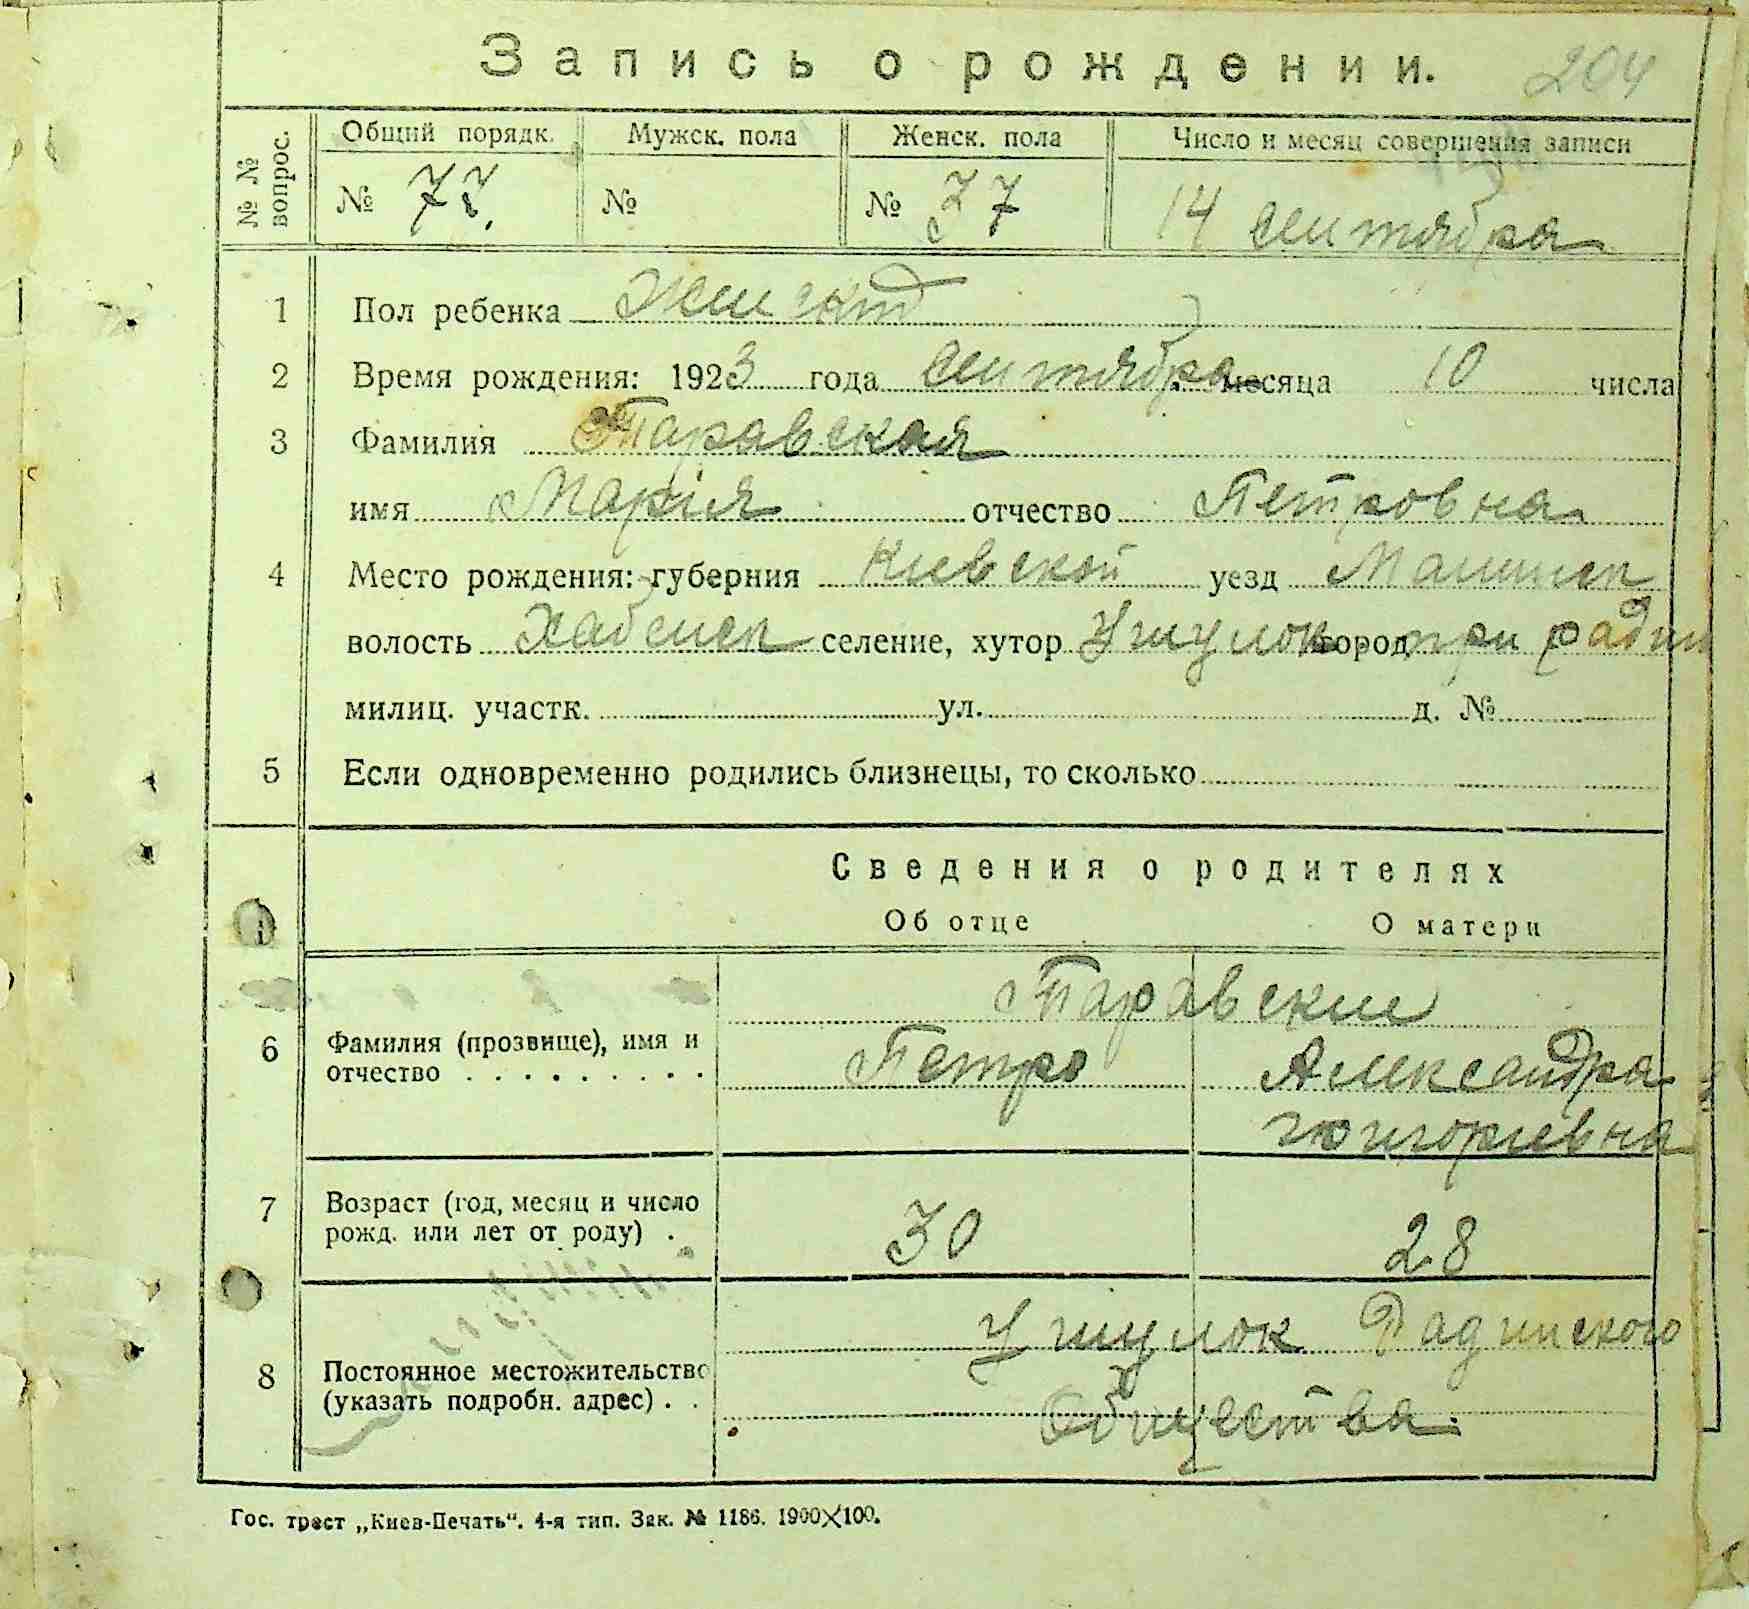 Запись о рождении. 204
№ № вопрос. Общий порядк. Мужск. пола Женск. пола Число и месяц совершения записи
№ 77. № № 37 14 сентября
1 Пол ребенка Женский
2 Время рождения: 1923 года сентября месяца 10 числа
3 Фамилия Таравская
имя Марія отчество Петровна
4 Место рождения: губерния Киевской уезд Малинск
волость Хабенск селение, хутор город при
милиц. участк. ул. д. №
5 Если одновременно родились близнецы, то сколько
Сведения о родителях
Об отце О матери
Таравские
6 Фамилия (прозвище), имя и отчество Петро Александра
Григорьевна
7 Возраст (год, месяц и число рожд. или лет от роду) . 30 28
Радинского
8 Постоянное местожительство (указать подробн. адрес) . . Общества.
Гос. трест „Киев-Печать“. 4-я тип. Зак. № 1186. 1900×100.